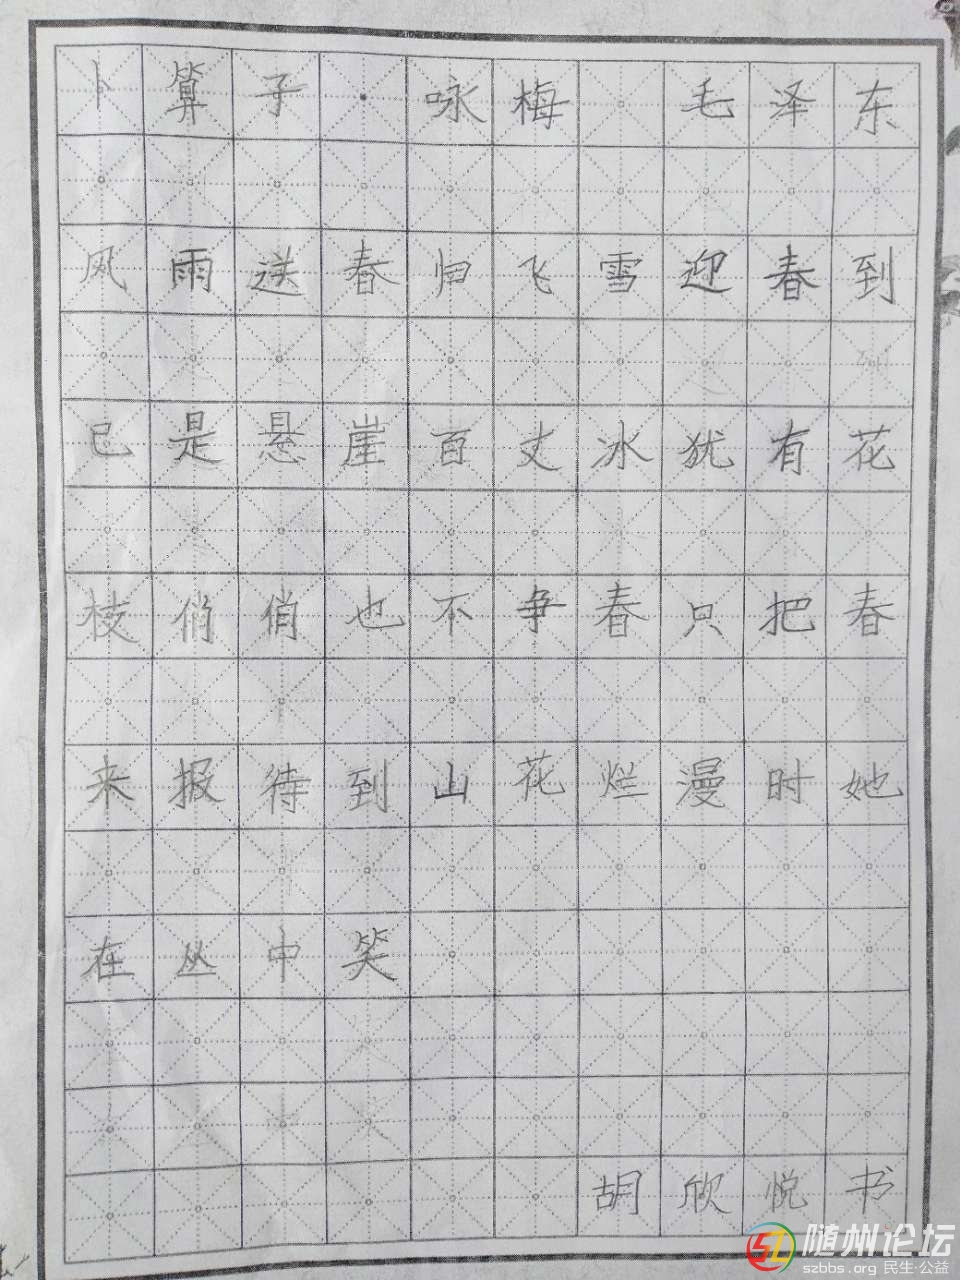 卜算子·咏梅 毛泽东
风雨送春归飞雪迎春到
已是悬崖百丈冰犹有花
枝俏俏也不争春只把春
来报待到山花烂漫时她
在丛中笑
胡欣悦书
随州论坛
szbbs.org 民生·公益